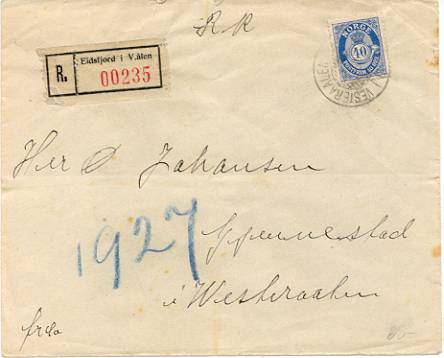 R R
R. Eidsfjord i V.ålen
00235
NORGE
40
I VESTERAALEN
Herr O Johansen
1927
i Westeraalen
frko